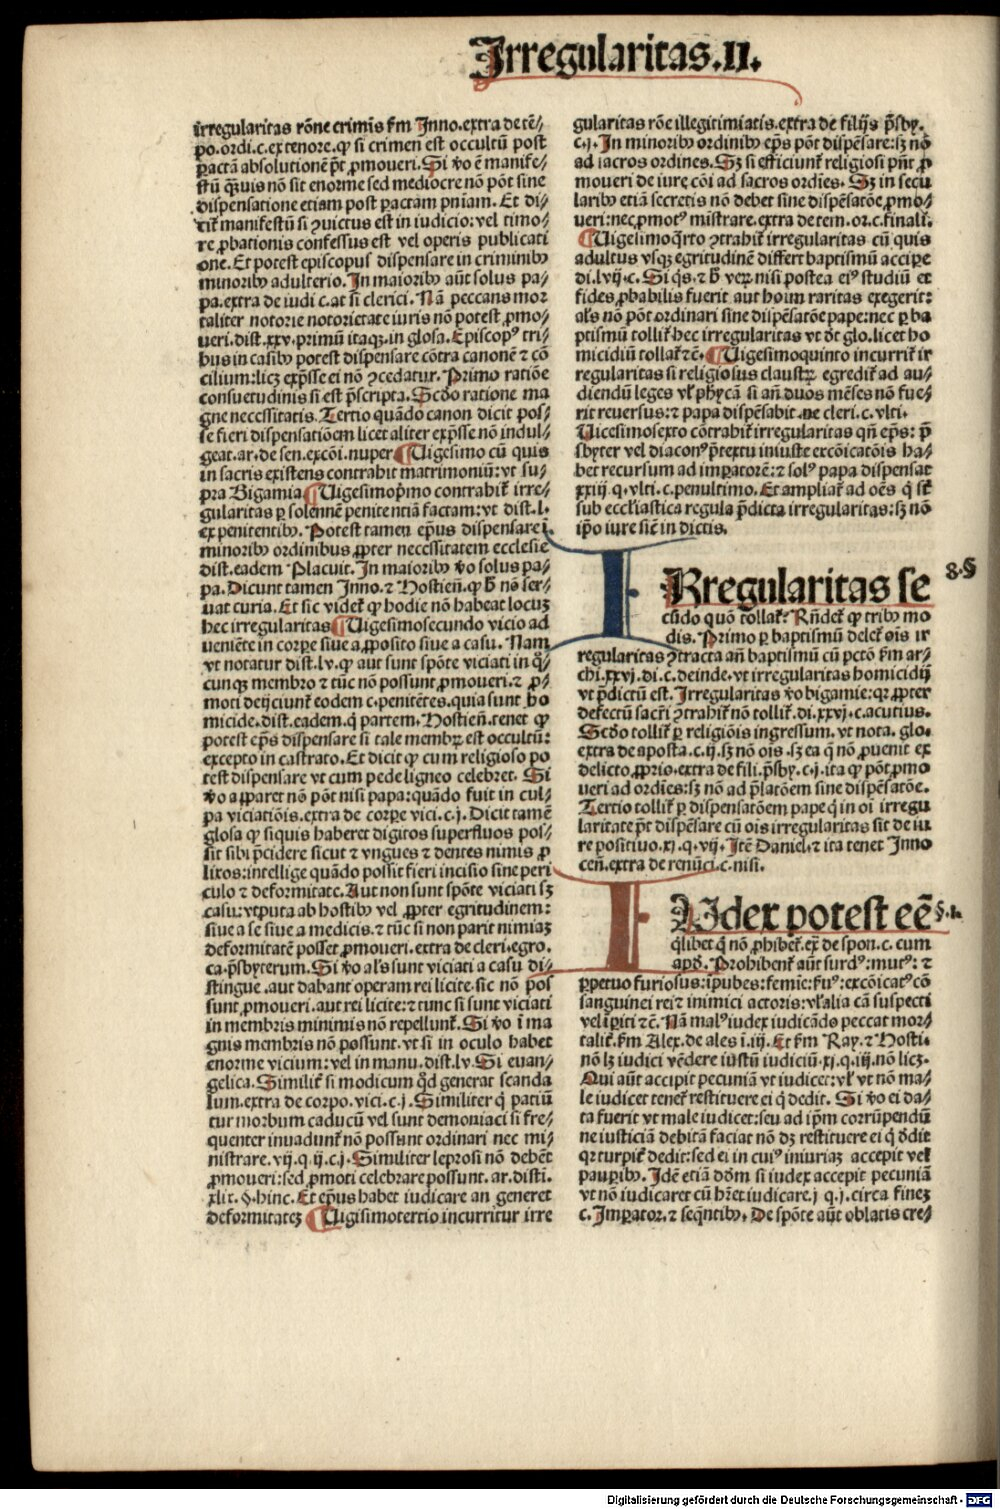 Irregularitas.II.
irregularitas rōne crimīs ẜm Inno.extra de tē⸗
po.ordi.c.ex tenore.ꝙ si crimen est occultū post
ꝑactā absolutionē pōt ꝓmoueri.Si ꝟo ē manife⸗
stū q̄uis nō sit enorme sed mediocre nō pōt sine
dispensatione etiam post ꝑactam pniam. Et di⸗
cit̃ manifestū si ꝯuictus est in iudicio: vel timo⸗
re ꝓbationis confessus est vel operis publicati
one. Et potest episcopus dispensare in criminibꝫ
minoribꝫ adulterio. In maioribꝫ aūt solus pa⸗
pa.extra de iudi c.at si clerici. Nā peccans mor
taliter notorie notorietate iuris nō potest ꝓmo⸗
ueri.dist.xxv.primū itaqꝫ.in glosa.Episcopꝰ tri⸗
bus in casibꝫ potest dispensare cōtra canonē ⁊ cō
cilium:licꝫ exp̄sse ei nō ꝯcedatur. Primo ratiōe
consuetudinis si est p̄scripta. Scd̄o ratione ma
gne necessitatis. Tertio quādo canon dicit pos⸗
se fieri dispensatiōem licet aliter exp̄sse nō indul⸗
geat.ar.de sen.excōi.nuper ¶ Uigesimo cū quis
in sacris existens contrahit matrimoniū: vt su⸗
pra Bigamia ¶ Uigesimop̄mo contrahit̃ irre⸗
gularitas ꝑ solennē penitentiā factam: vt dist.l.
ex penitentibꝫ. Potest tamen ep̄us dispensare ī
minoribꝫ ordinibus ꝓpter necessitatem ecclesie
dist.eadem Placuit. In maioribꝫ ꝟo solus pa⸗
pa. Dicunt tamen Inno. ⁊ Hostien̄. ꝙ ħ nō ser⸗
uat curia. Et sic videt̃ ꝙ hodie nō habeat locuꝫ
hec irregularitas ¶ Uigesimosecundo vicio ad
ueniēte in corꝑe siue a ꝓposito siue a casu. Nam
vt notatur dist.lv. ꝙ aut sunt spōte viciati in q̄⸗
cunqꝫ membro ⁊ tūc nō possunt ꝓmoueri. ⁊ ꝓ⸗
moti deijciunt̃ eodem c.penitētes.quia sunt ho
micide.dist.eadem.q̄ partem. Hostien̄.tenet ꝙ
potest ep̄s dispensare si tale membꝝ est occultū:
excepto in castrato. Et dicit ꝙ cum religioso po
test dispensare vt cum pede ligneo celebret. Si
ꝟo apparet nō pōt nisi papa: quādo fuit in cul⸗
pa viciatiōis.extra de corꝑe vici.c.j. Dicit tamē
glosa ꝙ siquis haberet digitos superfluos pos⸗
sit sibi p̄cidere sicut ⁊ vngues ⁊ dentes nimis ꝓ
lixos: intellige quādo possit fieri incisio sine peri
culo ⁊ deformitate. Aut non sunt spōte viciati sꝫ
casu: vtputa ab hostibꝫ vel ꝓpter egritudinem:
siue a se siue a medicis. ⁊ tūc si non parit nimiaꝫ
deformitatē posset ꝓmoueri.extra de cleri.egro.
ca.p̄sbyterum. Si ꝟo al̄s sunt viciati a casu di⸗
stingue.aut dabant operam rei licite.sic nō pos
sunt ꝓmoueri.aut rei licite: ⁊ tunc si sunt viciati
in membris minimis nō repellunt̃. Si ꝟo ī ma
gnis membris nō possunt. vt si in oculo habet
enorme vicium: vel in manu. dist.lv. Si euan⸗
gelica. Similit̃ si modicum qd̄ generat scanda
lum.extra de corpo.vici.c.j. Similiter q̄ patiū
tur morbum caducū vel sunt demoniaci si fre⸗
quenter inuadunt̃ nō possunt ordinari nec mi⸗
nistrare. vij.q.ij.c.j. Similiter leprosi nō debēt
ꝓmoueri: sed ꝓmoti celebrare possunt. ar.disti.
xlix.§.hinc. Et ep̄us habet iudicare an generet
deformitateꝫ ¶ Uigisimotertio incurritur irre
gularitas rōe illegitimiatis.extra de filijs p̄sby.
c.j. In minoribꝫ ordinibꝫ ep̄s pōt dispēsare: sꝫ nō
ad sacros ordines. Sꝫ si efficiunt̃ religiosi pn̄t ꝓ
moueri de iure cōi ad sacros ordīes. Sꝫ in secu
laribꝫ etiā secretis nō debet sine dispēsatōe ꝓmo⸗
ueri: nec ꝓmotꝰ mīstrare.extra de tem.or.c.finali.
¶ Uigesimoq̄rto ꝯtrahit̃ irregularitas cū quis
adultus vsqꝫ egritudinē differt baptismū acciꝑe
di.lvij.c. Si q̄s. ⁊ ħ veꝝ nisi postea eiꝰ studiū et
fides ꝓbabilis fuerit aut hoīm raritas exegerit:
al̄s nō pōt ordinari sine dispēsatōe pape: nec ꝑ ba
ptismū tollit̃ hec irregularitas vt dt̄ glo. licet ho
micidiū tollat̃ ⁊c̄. ¶ Uigesimoquinto incurrit̃ ir
regularitas si religiosus claustꝝ egredit̃ ad au⸗
diendū leges vl̄ phycā si an̄ duos mēses nō fue⸗
rit reuersus: ⁊ papa dispēsabit .ne cleri.c.vlti.
Uicesimosexto cōtrahit̃ irregularitas qn̄ ep̄s: p̄
sbyter vel diaconꝰ p̄textu iniuste excōicatōis ha⸗
bet recursum ad imꝑatorē: ⁊ solꝰ papa dispensat
xxiij.q.vlti.c.penultimo. Et ampliat̃ ad oēs q̄ st̄
sub eccl̄iastica regula p̄dicta irregularitas: sꝫ nō
ip̄o iure sic̄ in dictis.
IRregularitas se 8.§
cūdo quō tollat̃: Rn̄det̃ ꝙ tribꝫ mo
dis. Primo ꝑ baptismū delet̃ oīs ir
regularitas ꝯtracta an̄ baptismū cū pctō ẜm ar⸗
chi.xxvj.di.c.deinde. vt irregularitas homicidij
vt p̄dictū est. Irregularitas ꝟo bigamie: qꝛ ꝓpter
defectū sacr̄i ꝯtrahit̃ nō tollit̃. di.xxvj.c.acutius.
Scd̄o tollit̃ ꝑ religiōis ingressum. vt nota. glo.
extra de aposta.c.ij. sꝫ nō oīs. sꝫ ea q̄ nō ꝓuenit ex
delicto ꝓprio.extra de fili.p̄sby.c.j. ita ꝙ pōt ꝓmo
ueri ad ordīes: sꝫ nō ad p̄latōem sine dispēsatōe.
Tertio tollit̃ ꝑ dispensatōem pape q̄ in oī irregu
laritate pōt dispēsare cū oīs irregularitas sit de iu
re positiuo. xj.q.vij. Itē Daniel. ⁊ ita tenet Inno
cen̄. extra de renūci.c.nisi.
IUdex potest eē §.1.
q̄libet q̄ nō ꝓhibet̃.ex̄ de spon.c.cum
apd̄. Prohibent̃ aūt surdꝰ: mutꝰ: ⁊
ꝑpetuo furiosus: īpubes: femīe: ẜuꝰ: excōicatꝰ cō
sanguinei rei ⁊ inimici actoris: vl̄ alia cā suspecti
vel īꝑiti ⁊c̄. Nā malꝰ iudex iudicādo peccat mor⸗
talit̃. ẜm Alex. de ales ī.iij. Et ẜm Ray. ⁊ Hosti.
nō lꝫ iudici vēdere iustū iudiciū. xj.q.iij. nō licꝫ.
Qui aūt accipit pecuniā vt iudicet: vl̄ vt nō ma⸗
le iudicet tenet̃ restituere ei q̄ dedit. Si ꝟo ei da⸗
ta fuerit vt male iudicet: seu ad ip̄m corrūpendū
ne iusticiā debitā faciat nō dꝫ restituere ei q̄ dedit
qꝛ turpit̃ dedit: sed ei in cuiꝰ iniuriaꝫ accepit vel
pauꝑibꝫ. Idē etiā dd̄m si iudex accepit pecuniā
vt nō iudicaret cū h̄ret iudicare. j q.j. circa fineꝫ
c. Imꝑator. ⁊ seqn̄tibꝫ. De spōte aūt oblatis cre⸗
Digitalisierung gefördert durch die Deutsche Forschungsgemeinschaft - DFG